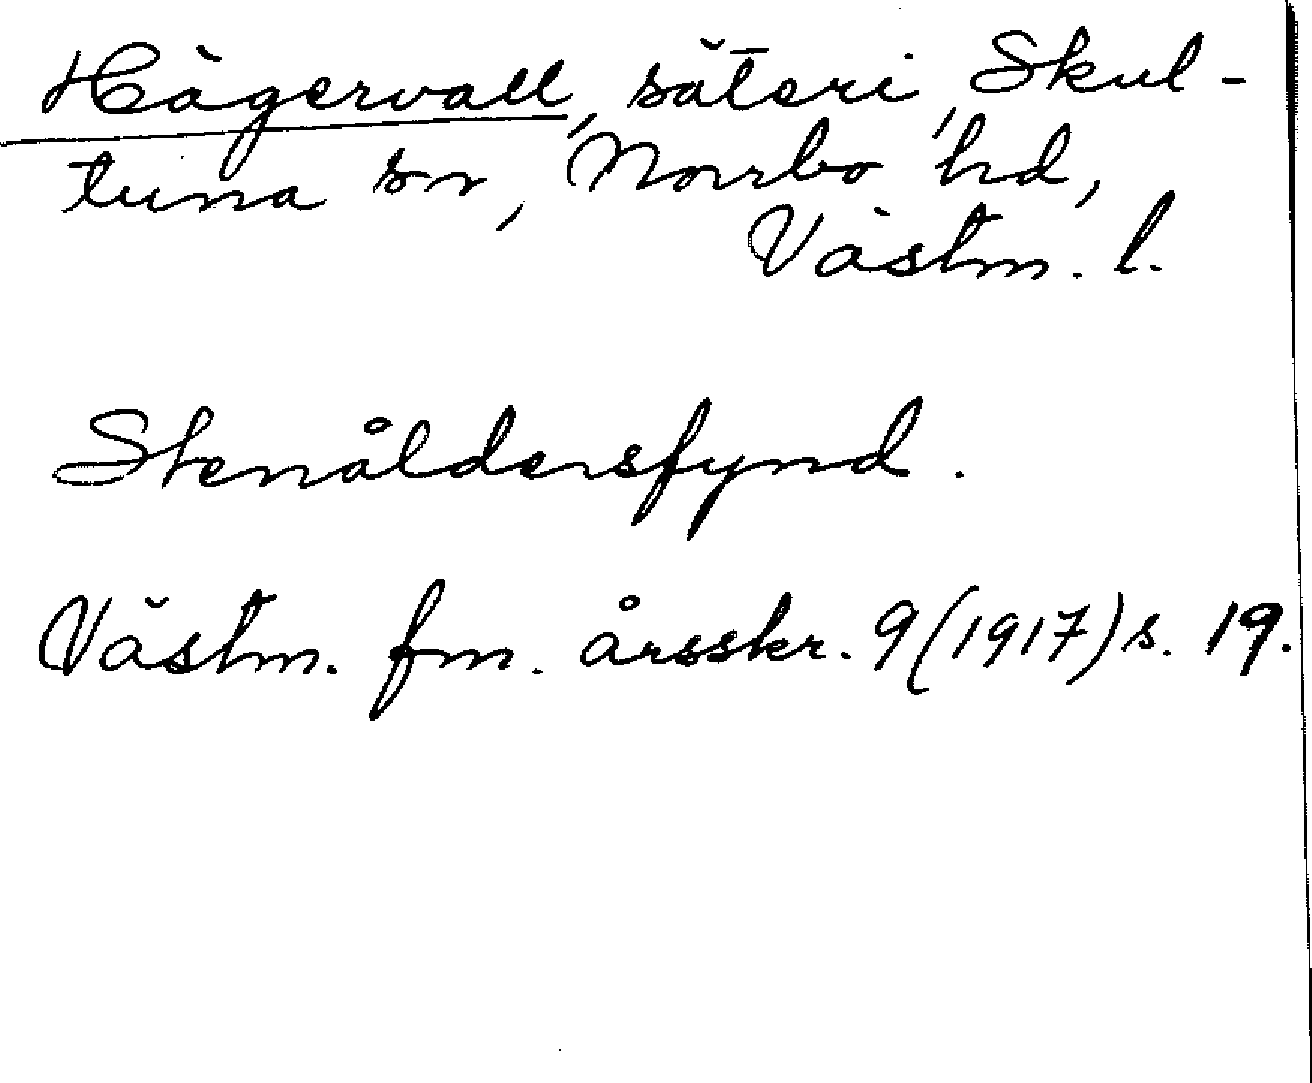 Hägervall, säteri, Skul-
tuna sn, Norrbo hd,
Västm. l.
Stenåldersfynd.
Västm. fm. årsskr. 9 (1917) s. 19.